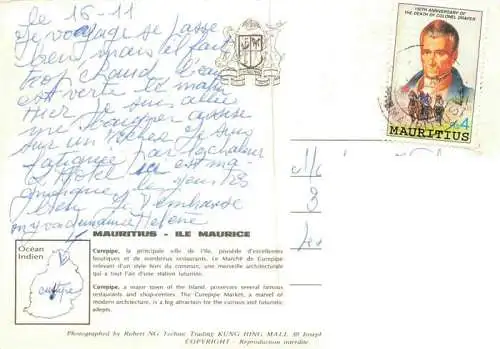 le 16-11
Le voyage se passe
bien mais il fait
trop chaud l'eau
est verte le matin
Hier je suis allée
me tremper assise
sur un rocher je suis
fatiguée par la chaleur
L'Hotel est ma-
gnifique
bien Je t'embrasse
Helène
150TH ANNIVERSARY OF
THE DEATH OF COLONEL DRAPER
4
MAURITIUS
MAURITIUS - ILE MAURICE
Océan
Indien
curepipe
Curepipe, la principale ville de l'Ile, possède d'excellentes
boutiques et de nombreux restaurants. Le Marché de Curepipe
relevant d'un style hors du commun, une merveille architecturale
qui a tout l'air d'une station futuriste.
Curepipe, a major town of the Island, possesses several famous
restaurants and shop-centres. The Curepipe Market, a marvel of
modern architecture, is a big attraction for the curious and futuristic
adepts.
Photographed by Robert NG Techno Trading KUNG HING MALL 38 Joseph
COPYRIGHT - Reproduction interdite